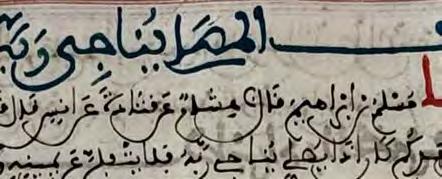 المصلي يناجي ربه
مسلم بن ابراهيم قال هشام عن قتادة عن انس قال
اذا يصلي يناجي ربه فلا يتفلن عن يمينه